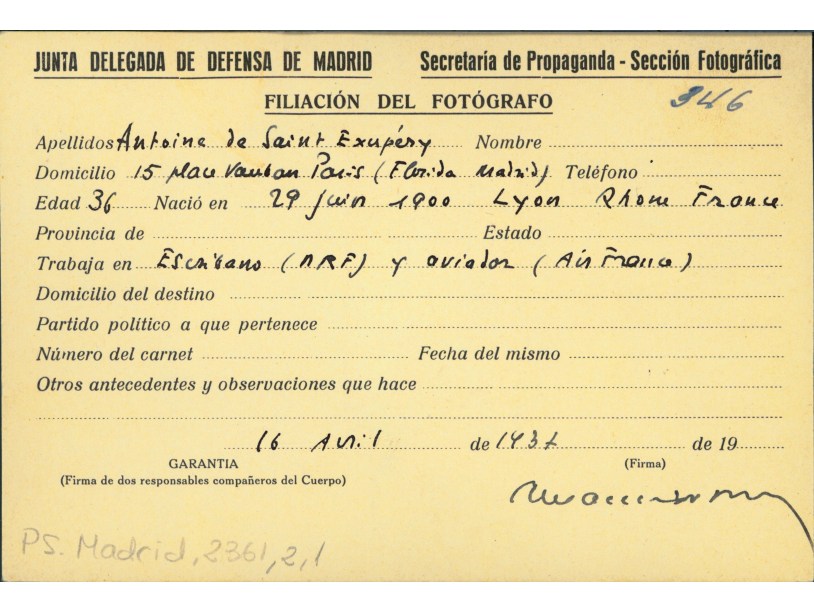 JUNTA DELEGADA DE DEFENSA DE MADRID Secretaría de Propaganda - Sección Fotográfica
FILIACIÓN DEL FOTÓGRAFO 346
Apellidos Antoine de Saint Exupéry Nombre
Domicilio 15 place Vauban Paris (Florida Madrid) Teléfono
Edad 36 Nació en 29 juin 1900 Lyon Rhone France
Provincia de Estado
Trabaja en Escribano (NRF) y aviador (Air France)
Domicilio del destino
Partido político a que pertenece
Número del carnet Fecha del mismo
Otros antecedentes y observaciones que hace
16 Avril de 1937 de 19
GARANTIA (Firma)
(Firma de dos responsables compañeros del Cuerpo)
PS. Madrid, 2361, 2, 1